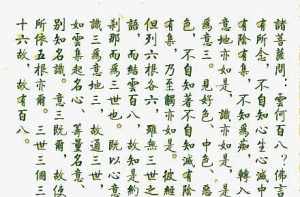 諸菩薩問，云何百八？佛言
有所念，不自知心生心滅中
有陰有集，不知為痴，轉入
意地亦如是，識亦如是，是
為意三。見好色、中色、惡
色，不自知著不自知滅，有陰
有集，乃至觸亦如是。彼經
但列六根各六，雖無三世之
語，而結云百八，故知是約
剎那而為三世也。既以心意
識三為意地三，故通三世，
如雲集起名心，籌量名意，
別知名識。意三既爾，故使
所依五根亦爾。三世三個三
十六故，故有百八。